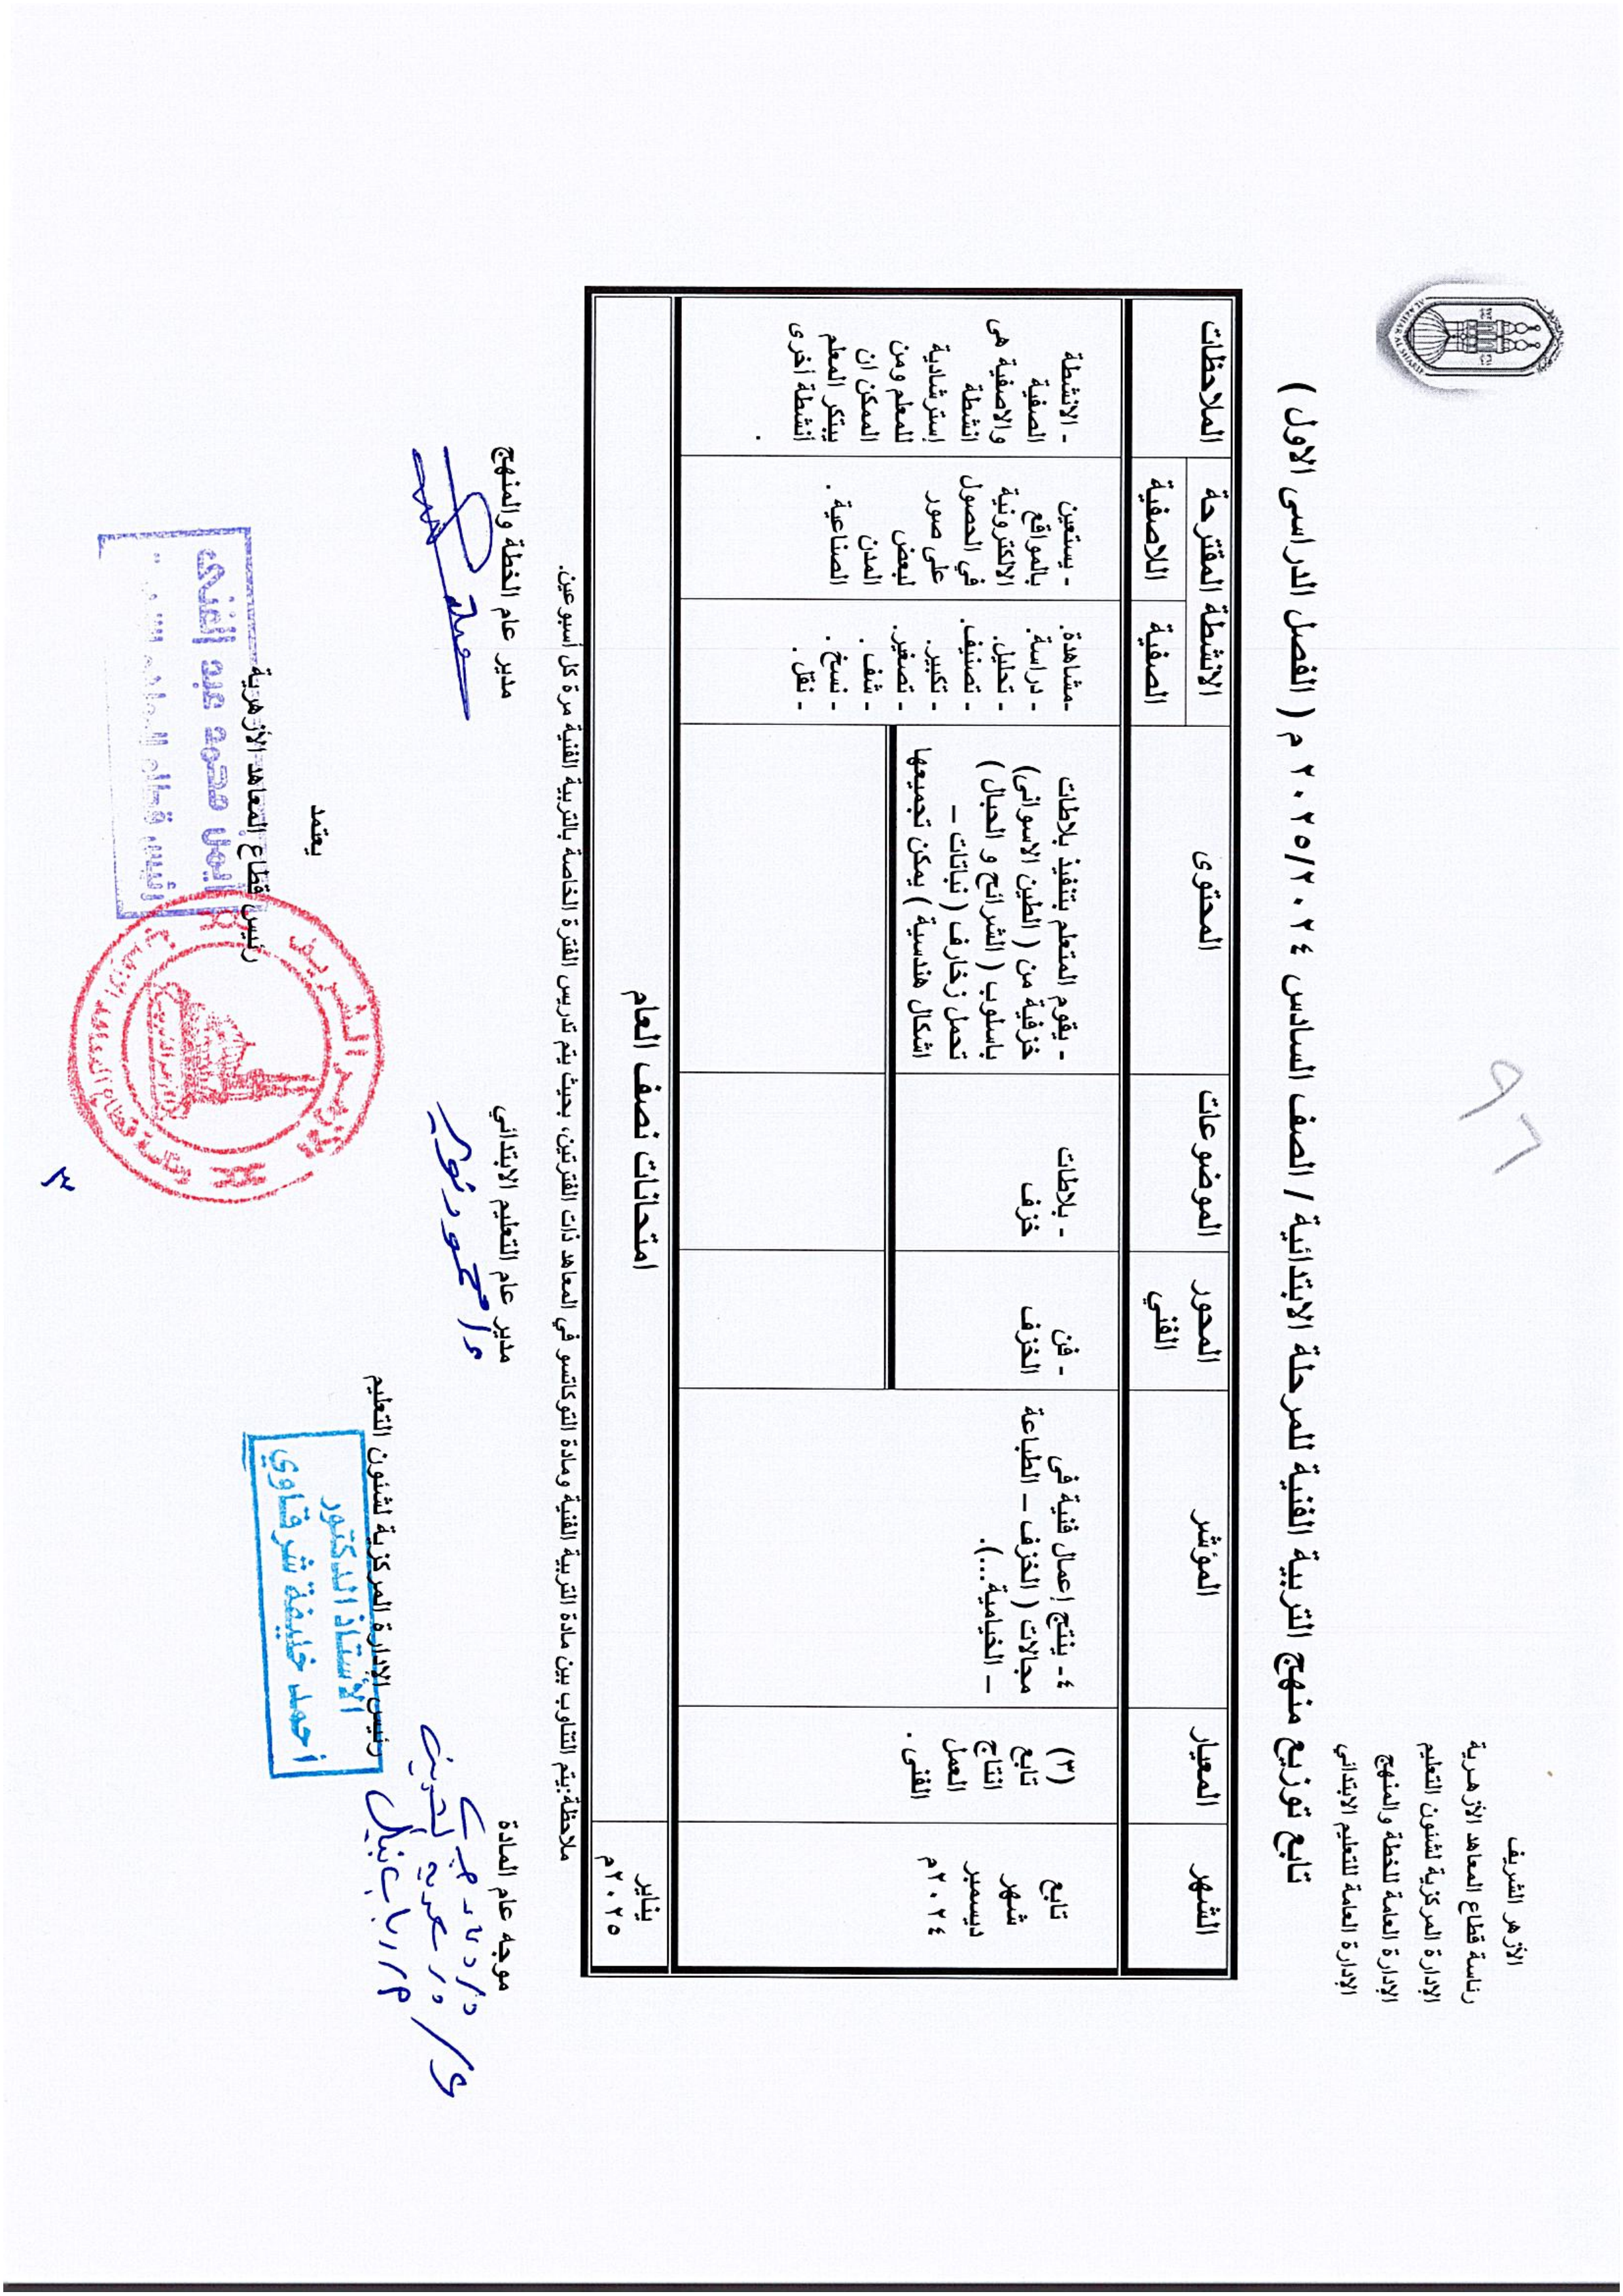 الأزهر الشريف
رئاسة قطاع المعاهد الأزهرية
الإدارة المركزية لشئون التعليم
الإدارة العامة للخطة والمنهج
الإدارة العامة للتعليم الابتدائي
AL AZHAR AL SHARIF
٩٦
تابع توزيع منهج التربية الفنية للمرحلة الابتدائية / الصف السادس ٢٠٢٥/٢٠٢٤ م ( الفصل الدراسى الاول )
الشهر
المعيار
المؤشر
المحور
الفني
الموضوعات
المحتوى
الانشطة المقترحة
الصفية
اللاصفية
الملاحظات
تابع
شهر
ديسمبر
٢٠٢٤م
(٣)
تابع
انتاج
العمل
الفنى .
٤- ينتج إعمال فنية فى
مجالات ( الخزف – الطباعة
– الخيامية ...).
- فن
الخزف
- بلاطات
خزف
- يقوم المتعلم بتنفيذ بلاطات
خزفية من ( الطين الاسوانى)
باسلوب ( الشرائح و الحبال )
تحمل زخارف ( نباتات –
اشكال هندسية ) يمكن تجميعها
-مشاهدة.
- دراسة.
- تحليل.
- تصنيف.
- تكبير.
- تصغير.
- شف .
- نسخ .
- نقل .
- يستعين
بالمواقع
الالكترونية
في الحصول
على صور
لبعض
المدن
الصناعية .
- الانشطة
الصفية
والاصفية هى
انشطة
إسترشادية
للمعلم ومن
الممكن ان
يبتكر المعلم
أنشطة أخرى
.
يناير
٢٠٢٥م
امتحانات نصف العام
ملاحظة:يتم التناوب بين مادة التربية الفنية ومادة التوكاتسو في المعاهد ذات الفترتين، بحيث يتم تدريس الفترة الخاصة بالتربية الفنية مرة كل أسبوعين.
موجه عام المادة
مدير عام التعليم الابتدائي
مدير عام الخطة والمنهج
رئيس الإدارة المركزية لشئون التعليم
الأستاذ الدكتور
أحمد خليفة شرقاوي
يعتمد
رئيس قطاع المعاهد الأزهرية
أيمن محمد عبد الغنى
الأزهر الشريف
٣